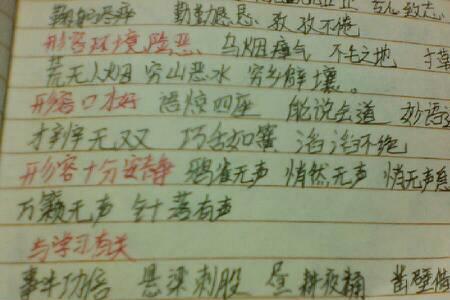 鞠躬尽瘁 勤勤恳恳 孜孜不倦
形容环境险恶 乌烟瘴气 不毛之地
荒无人烟 穷山恶水 穷乡僻壤。
形容口才好 语惊四座 能说会道 妙语
才辩无双 巧舌如簧 滔滔不绝
形容十分安静 鸦雀无声 悄然无声 悄无声息
万籁无声 针落有声
与学习有关
事半功倍 悬梁刺股 昼耕夜诵 凿壁借